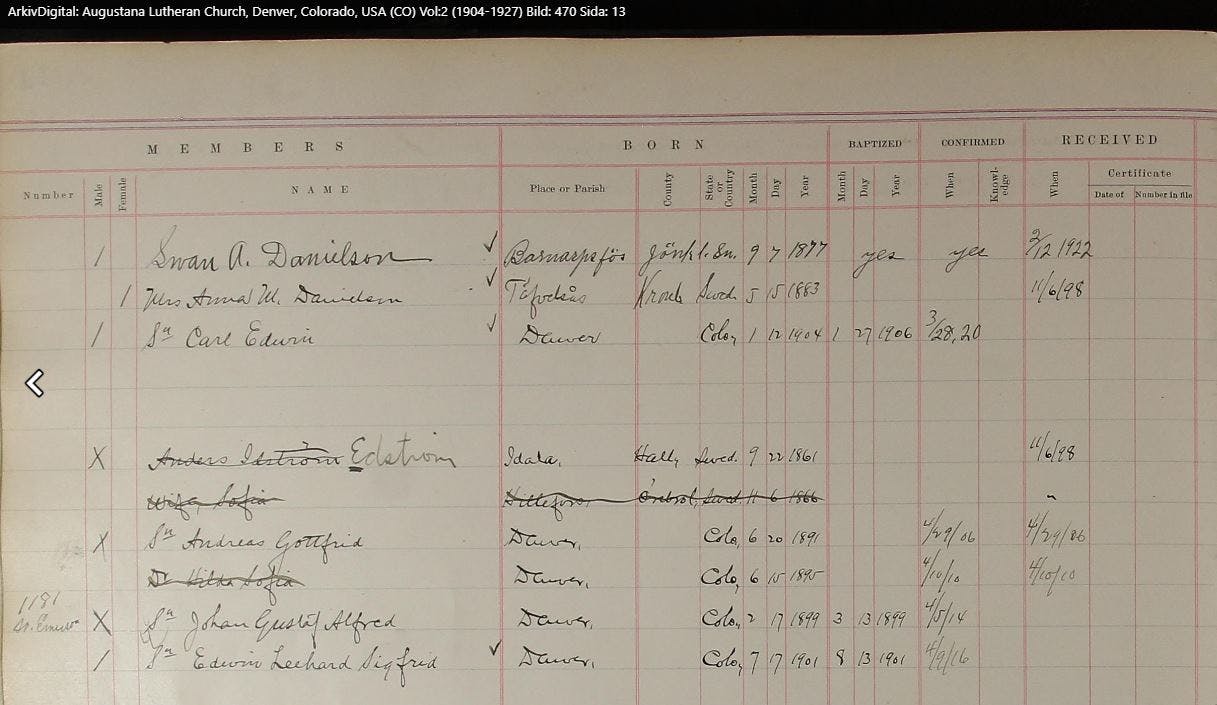 ArkivDigital: Augustana Lutheran Church, Denver, Colorado, USA (CO) Vol:2 (1904-1927) Bild: 470 Sida: 13
MEMBERS BORN BAPTIZED CONFIRMED RECEIVED
Number Male Female NAME Place or Parish County State or Country Month Day Year Month Day Year When Knowl-edge When Certificate
Date of Number in file
1 Swan A. Danielson ✓ Barnarpsfös Jönk l. Sn. 9 7 1877 yes yes 2/12 1922
1 Mrs Anna M. Danielson ✓ Kronob Swed. 5 15 1883 11/6/98
1 Sn Carl Edwin ✓ Denver Colo, 1 12 1904 1 27 1906 3/28, 20
X Anders Idström Edstrom Idala, Hall, Swed. 9 22 1861 11/6/98
Wife, Sofia Örebrol, Swed. 11 6 1866 "
X Sn Andreas Gottfrid Denver, Colo, 6 20 1891 4/29/06 4/29/06
Dr Hilda Sofia Denver, Colo, 6 15 1895 4/10/10 4/10/10
1181
X Sn Johan Gustaf Alfred Denver, Colo, 2 17 1899 3 13 1899 4/5/14
1 Sn Edwin Leehard Sigfrid ✓ Denver, Colo, 7 17 1901 8 13 1901 4/9/16